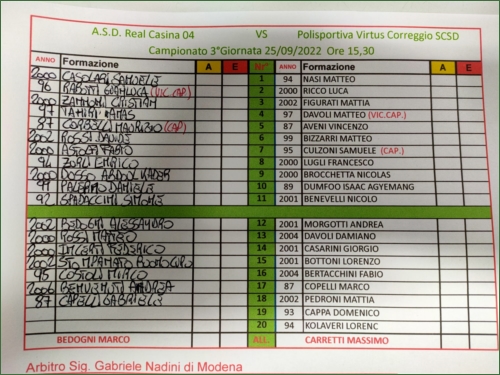 A.S.D. Real Casina 04 VS Polisportiva Virtus Correggio SCSD
Campionato 3°Giornata 25/09/2022 Ore 15,30
ANNO Formazione A E Nr° ANNO Formazione A E
2000 CASOLARI SAMUELE 1 94 NASI MATTEO
96 RABOTTI GIANLUCA (VIC.CAP.) 2 2000 RICCO LUCA
2000 ZAMBONI CRISTIAN 3 2002 FIGURATI MATTIA
97 TAHIRI ANAS 4 97 DAVOLI MATTEO (VIC.CAP.)
87 CORBELLI MAURIZIO (CAP) 5 87 AVENI VINCENZO
2002 ROSSI DAVIDE 6 99 BIZZARRI MATTEO
2000 FABIO 7 95 CULZONI SAMUELE (CAP.)
94 ZORLI ENRICO 8 2000 LUGLI FRANCESCO
2000 DOSSO ABDOUL KADER 9 2000 BROCCHETTA NICOLAS
99 PALERMO DANIELE 10 89 DUMFOO ISAAC AGYEMANG
92 SPADACCINI SIMONE 11 2001 BENEVELLI NICOLO
2002 BEDOGNI ALESSANDRO 12 2001 MORGOTTI ANDREA
2000 MATTEO 13 2004 DAVOLI DAMIANO
2000 FEDERICO 14 2001 CASARINI GIORGIO
2002 15 2001 BOTTONI LORENZO
95 COSTOLI MIRCO 16 2004 BERTACCHINI FABIO
2006 BENVENUTI ANDREA 17 87 COPELLI MARCO
87 CAPELLI GABRIELE 18 2002 PEDRONI MATTIA
19 93 CAPPA DOMENICO
20 94 KOLAVERI LORENC
BEDOGNI MARCO ALL. CARRETTI MASSIMO
Arbitro Sig. Gabriele Nadini di Modena